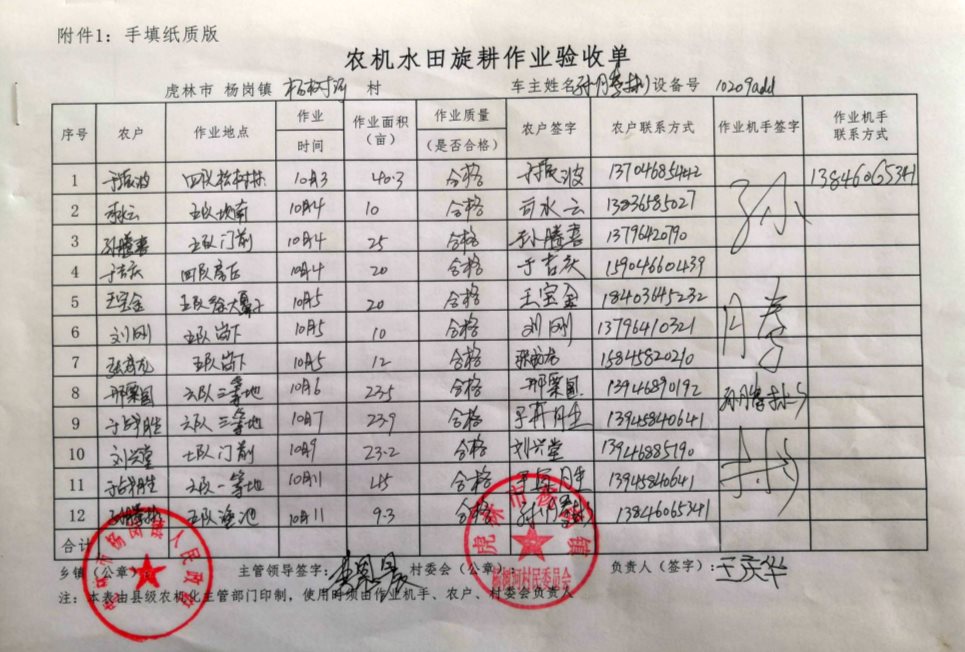 附件1：手填纸质版
农机水田旋耕作业验收单
虎林市 杨岗镇 杨树河 村 车主姓名 设备号 10209add
序号 农户 作业地点 作业时间 作业面积（亩） 作业质量（是否合格） 农户签字 农户联系方式 作业机手签字 作业机手联系方式
1 于振波 四队松树林 10月3 40.3 合格 于振波 13704685442 13846065341
2 五队坎南 10月4 10 合格 司水云 13836585027
3 孙腾喜 五队门前 10月4 25 合格 孙腾喜 13796420790
4 于吉庆 四队 10月4 20 合格 于吉庆 15904660439
5 王宝金 五队 10月5 20 合格 王宝金 18403645232
6 刘刚 五队岗下 10月5 10 合格 刘刚 13796410321
7 五队岗下 10月5 12 合格 15845820210
8 五队三等地 10月6 23.5 合格 13946890192
9 五队三等地 10月7 23.9 合格 13945840641
10 刘兴堂 七队门前 10月9 23.2 合格 刘兴堂 13946885190
11 五队一等地 10月11 45 合格 13945840641
12 五队 10月11 9.3 合格 13846065341
合计
乡镇（公章）： 主管领导签字： 村委会（公章）： 负责人（签字）：王庆华
注：本表由县级农机化主管部门印制，使用时须由作业机手、农户、村委会负责人
虎林市杨岗镇人民政府
虎林市杨岗镇
杨树河村民委员会